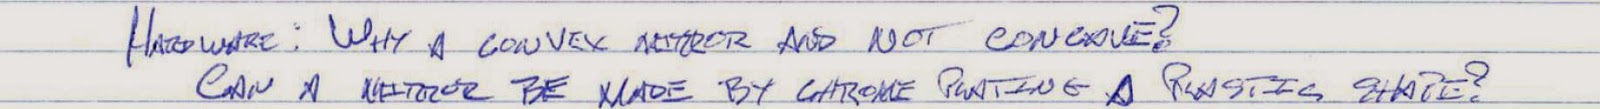 HARDWARE: WHY A CONVEX MIRROR AND NOT CONCAVE?
CAN A MIRROR BE MADE BY CHROME PLATING A PLASTIC SHAPE?